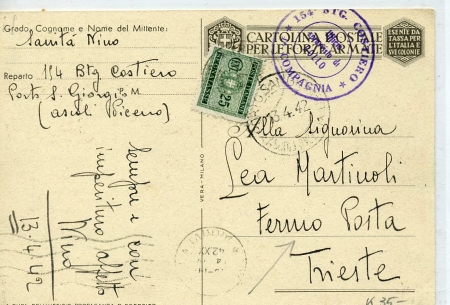 Grado, Cognome e Nome del Mittente:
Santà Nino
Reparto 114 Btg Costiero
Porto S. Giorgio P.M
(Ascoli Piceno)
Sempre e con
imperituro affetto
Nino
13.4.42
VERA - MILANO
CARTOLINA POSTALE
PER LE FORZE ARMATE
ESENTE DA
TASSA PER
L'ITALIA E
SUE COLONIE
BTG. COSTIERO
COMPAGNIA
25
4.42
Alla Signorina
Lea Martinoli
Fermo Posta
Trieste
42XX
K 35-